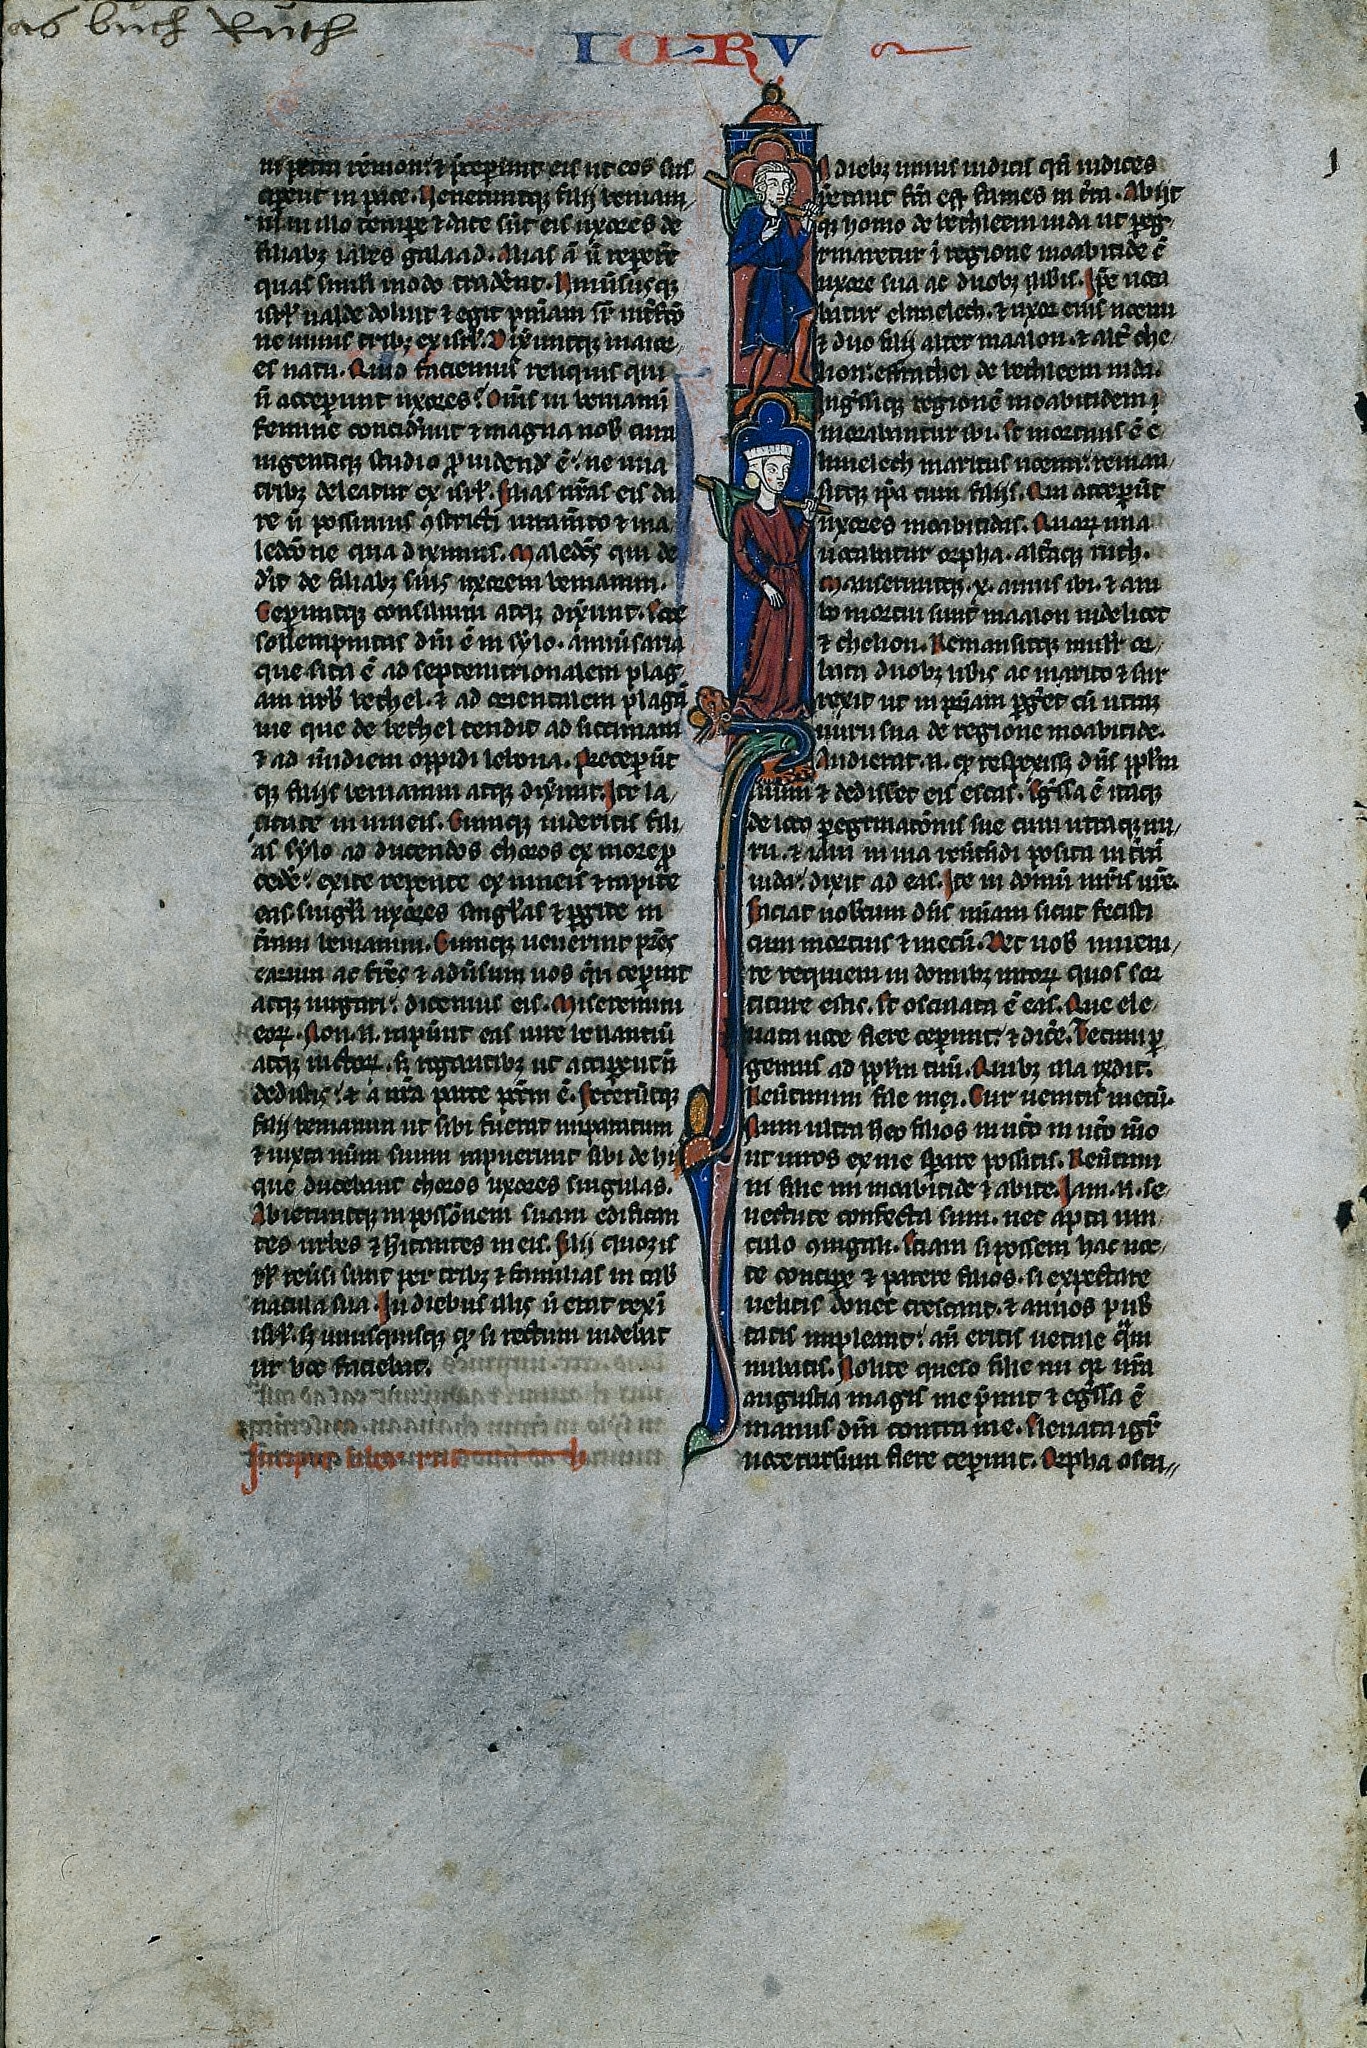 as buch Ruth
I CL RV
in petra remon. ⁊ p̄ceperunt eis ut eos sus
ciperent in pace. Veneruntqꝫ filij beniam/
in in illo tempe ⁊ date sūt eis uxores de
filiabꝫ iabes galaad. Alias ā n̄ repere
quas simili modo traderent. Uniusūsqꝫ
isrl̄ ualde doluit ⁊ egit pn̄iam sr̄ int̄fctō
ne unius tribꝫ ex isrl̄. Dixeruntqꝫ maior/
es natu. Quid faciemus reliquis qui
n̄ acceperunt uxores? Om̄s in beniamī
femine conciderunt ⁊ magna nob̄ cura
ingentiqꝫ studio p̱uidend̄ ē. ne una
tribꝫ deleatur ex isrl̄. Filias nr̄as eis da
re n̄ possumus ꝯstricti iuram̄to ⁊ ma
ledcōne qua diximus. Maledcs̄ qui de
dr̄it de filiabꝫ suis uxorem beniamin.
Ceperuntqꝫ consilium atqꝫ dixerunt. Ecce
sollempnitas dn̄i ē in sylo. anniūsaria
que sita ē ad septemtrionalem plag
am urb̄ bethel. ⁊ ad orientalem plagā
uie que de bethel tendit ad siccimam
⁊ ad m̄idiem oppidi lebona. Preceperūt
qꝫ filijs beniamin atqꝫ dixerunt. Ite la/
titate in uineis. Cumqꝫ uideritis fili/
as sylo ad ducendos choros ex more p̱
cedē. exite repente ex uineis ⁊ rapite
eas singl̄i uxores singl̄as ⁊ ꝑgite in
tr̄am beniamin. Cumqꝫ uenerint pr̄es
earum ac fr̄es ⁊ adūsum uos q̄ri ceperint
atqꝫ iurgari. dicemus eis. Miseremini
eoꝝ. Non .n. rapuerūt eas iure bellantiū
atqꝫ uictoꝝ. sꝫ rogantibꝫ ut acciperent n̄
dedistis. ⁊ a ur̄a parte pctm̄ ē. Feceruntqꝫ
filij beniamin ut sibi fuerat imperatum
⁊ iuxta num̄ suum rapuerunt sibi de hi
que ducebant choros uxores singulas.
Abieruntqꝫ in possōnem suam edifican
tes urbes ⁊ hitantes in eis. Filij quoqꝫ is
rl̄ reūsi sunt per tribꝫ ⁊ familias in tab̄
nacula sua. In diebus illis n̄ erat rex ī
isrl̄. sꝫ unusquisqꝫ qd̄ s̄ rectum uidebat
ur hoc faciebat.
Incipit liber ruth
n diebꝫ unius iudicis qn̄ iudices
p̄erant fc̄a est fames in tr̄a. Abijt
qꝫ homo de bethleem iuda ut pegͥ
rinaretur ī regione moabitide cū
uxore sua ac duobꝫ filiis. Ip̄e uoca
batur elimelech. ⁊ uxor eius noemi
⁊ duo filij alter maalon. ⁊ alt̄ che/
lion. effrathei de bethleem iuda.
Ingressiqꝫ regionē moabitidem ī
morabantur ibi. Et mortuus ē e
limelech maritus noemi. reman/
sitqꝫ ip̄a cum filijs. Qui acceperūt
uxores moabitidas. Quaꝝ una
uocabatur orpha. altāqꝫ ruth.
Manseruntqꝫ .x. annis ibi. ⁊ am
bo mortui sunt maalon uidelicet
⁊ chelion. Remansitqꝫ mulr̄ or/
bata duobꝫ lib̄is ac marito ⁊ sur
rexit ut in pr̄iam ꝑgeret cū utraqꝫ
nuru sua de regione moabitide.
Audierat .n. qd̄ respexiss̄ dn̄s pplm̄
suum ⁊ dedisset eis escas. Egr̄ssa ē itaqꝫ
de loco ꝑegrinatōnis sue cum utraqꝫ nu/
ru. ⁊ iam in uia reūtendi posita in tr̄ā
iuda. dixit ad eas. Ite in domū mr̄is ur̄e.
Faciat uobcum dn̄s mīam sicut fecisti
cum mortuis ⁊ mecū. Det uob̄ inueni/
re requiem in domibꝫ uiroꝝ quos sor
titure estis. Et osculata ē eas. Que ele/
uata uoce flere ceperunt. ⁊ dicē. Tecum ꝑ
gemus ad pplm̄ tuū. Quibꝫ illa rn̄dit.
Reūtimini filie mei. Cur uenitis mecū.
Num ultra hēo filios in uto̅ in utō mō
ut uiros ex me sperare possitis. Reūtimi
ni filie mi moabitide ⁊ abite. Iam .n. se/
nectute confecta sum. nec apta uin/
culo ꝯiugali. Etiam si possem hac noc/
te concipe ⁊ parere filios. si expectare
uelitis donec crescant. ⁊ annos pub̄
tatis impleant. an̄ eritis uetule q̄m
nubatis. Nolite queso filie mi qꝛ ur̄a
angustia magis me p̄mit ⁊ egr̄ssa ē
manus dn̄i contra me. Eleuata igr̄
uoce rursum flere ceperunt. Orpha oscu//